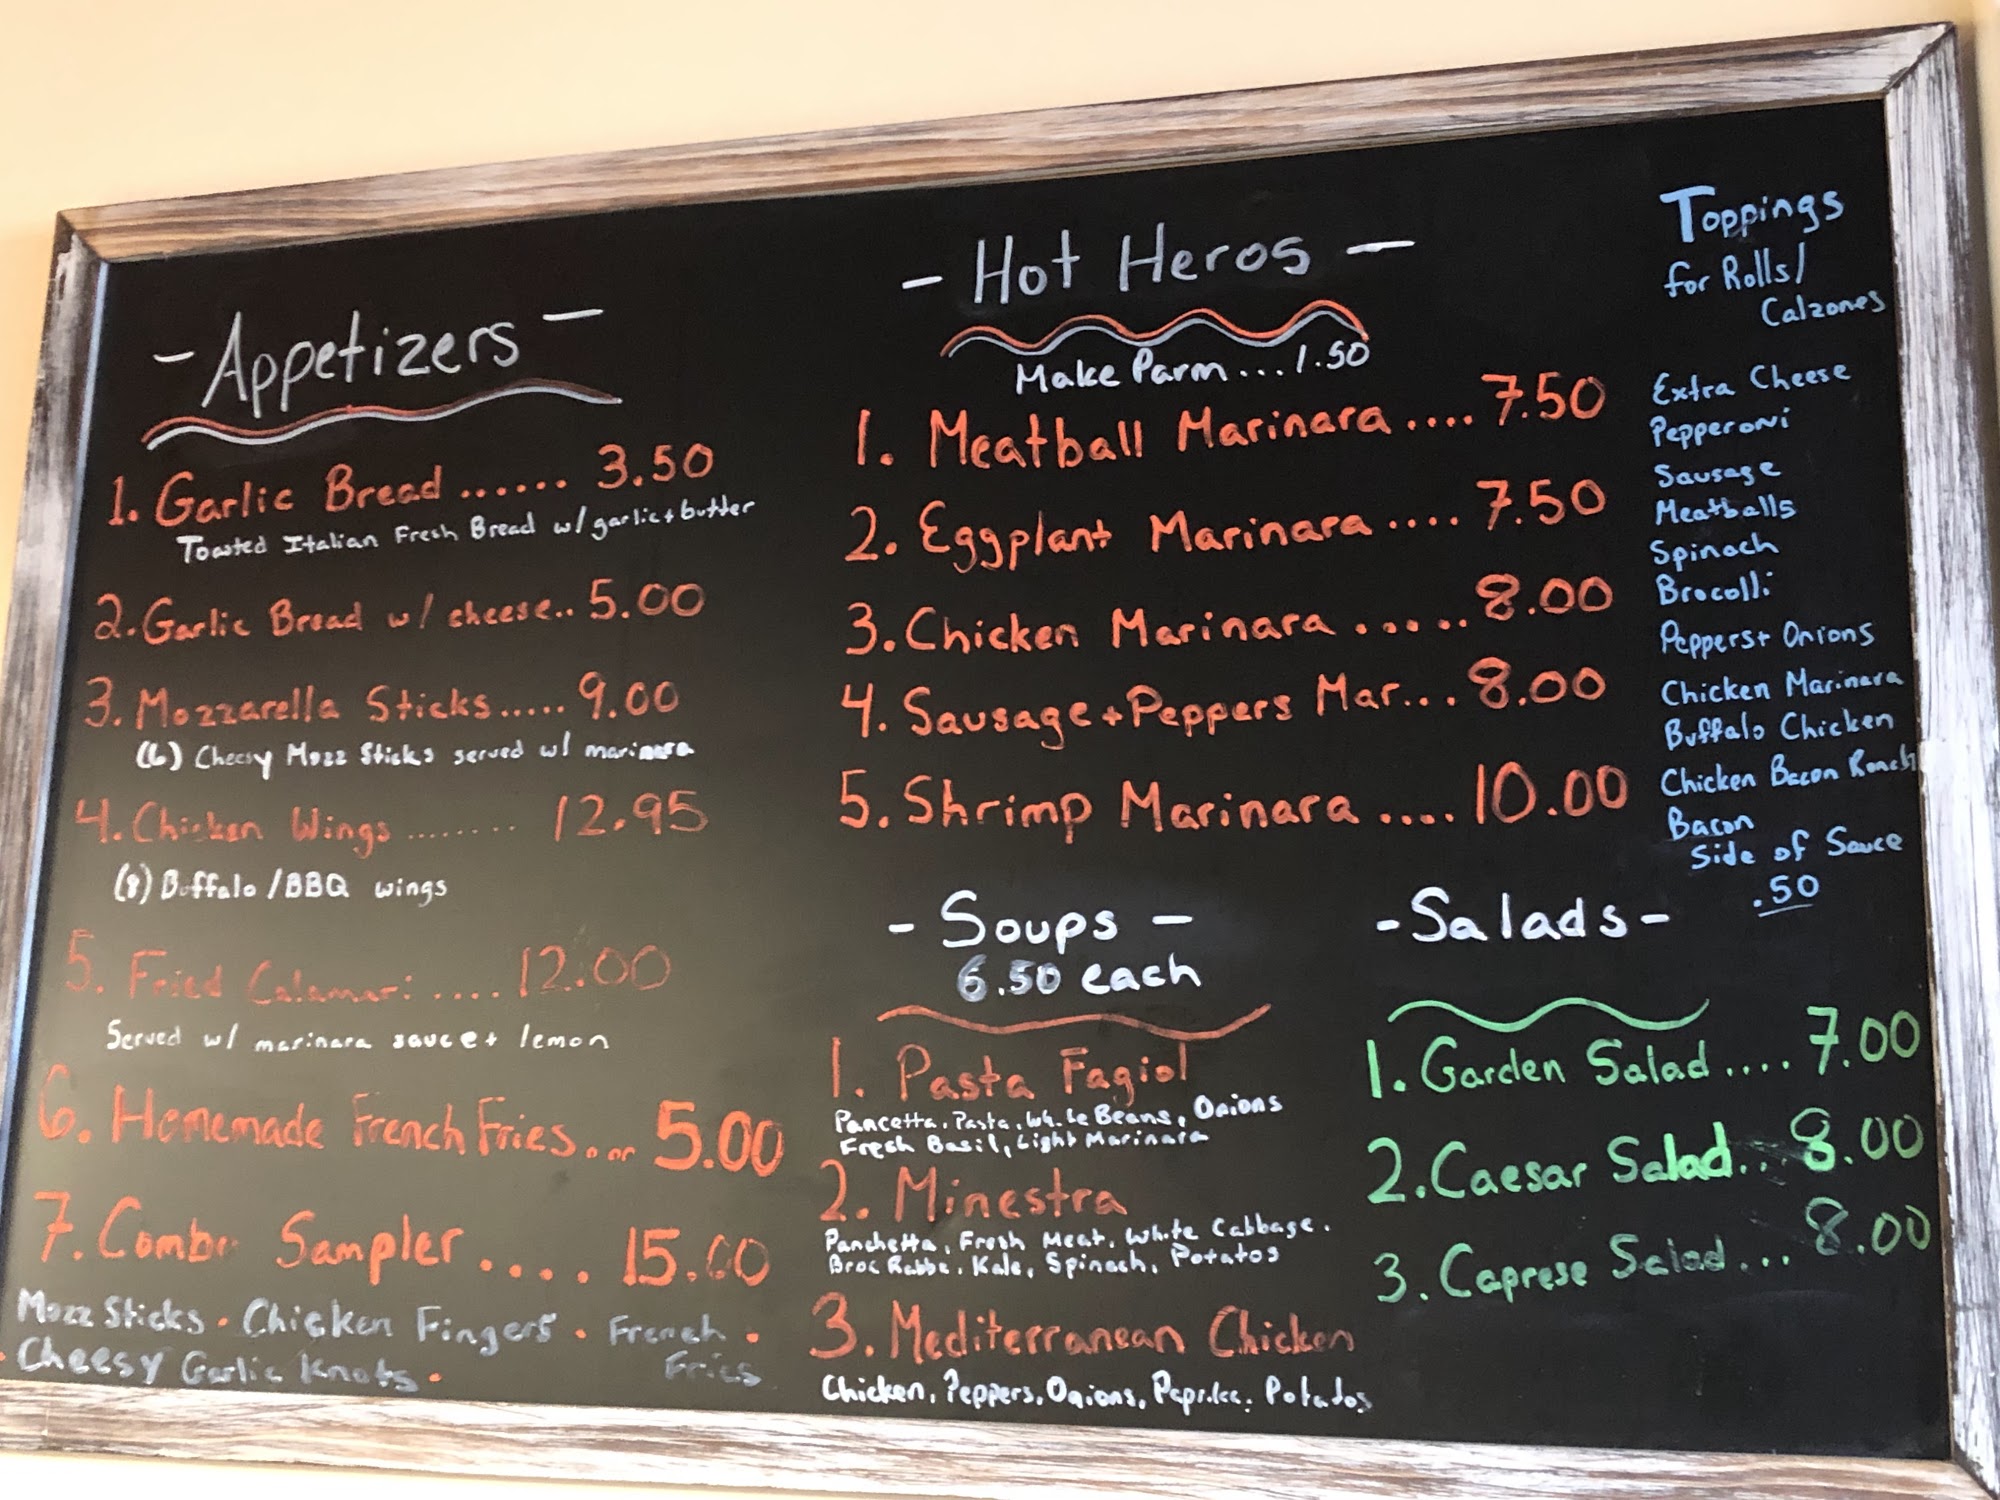 - Appetizers -
1. Garlic Bread ...... 3.50
Toasted Italian Fresh Bread w/ garlic + butter
2. Garlic Bread w/ cheese.. 5.00
3. Mozzarella Sticks..... 9.00
(6) Cheesy Mozz Sticks served w/ marinara
4. Chicken Wings ........ 12.95
(8) Buffalo/BBQ wings
5. Fried Calamari .... 12.00
Served w/ marinara sauce + lemon
6. Homemade French Fries... 5.00
7. Combo Sampler .... 15.00
Mozz Sticks • Chicken Fingers • French •
Fries
• Cheesy Garlic Knots •
- Hot Heros -
Make Parm...1.50
1. Meatball Marinara .... 7.50
2. Eggplant Marinara .... 7.50
3. Chicken Marinara ..... 8.00
4. Sausage + Peppers Mar... 8.00
5. Shrimp Marinara .... 10.00
- Soups -
6.50 each
1. Pasta Fagiol
Pancetta, Pasta, White Beans, Onions
Fresh Basil, Light Marinara
2. Minestra
Panchetta, Fresh Meat, White Cabbage.
Broc Rabbe, Kale, Spinach, Potatos
3. Mediterranean Chicken
Chicken, Peppers, Onions, Paprika, Potatos
- Salads -
1. Garden Salad .... 7.00
2. Caesar Salad... 8.00
3. Caprese Salad... 8.00
Toppings
for Rolls/
Calzones
Extra Cheese
Pepperoni
Sausage
Meatballs
Spinach
Brocolli
Peppers + Onions
Chicken Marinara
Buffalo Chicken
Chicken Bacon Ranch
Bacon
Side of Sauce
.50